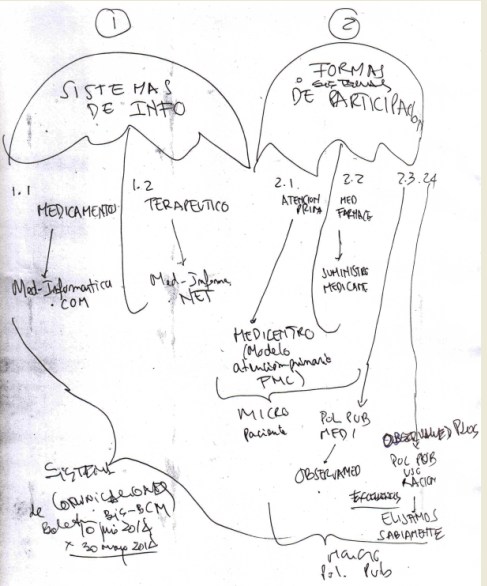 1
2
SISTEMAS
DE INFO
FORMAS
DE PARTICIPACION
1.1
MEDICAMENTO
1.2
TERAPEUTICO
2.1.
ATENCION
PRIMA
2.2
MED
2.3.
2.4
Med-Informatica
.COM
Med-Informa
NET
SUMINISTRO
MEDICENTRO
(Modelo
atencion primaria
PMC)
MICRO
Paciente
POL PUB
MEDI
OBSERVAMED
POL PUB
USO
RACION
ELIJAMOS
SABIAMENTE
SISTEMA
de COMUNICACIONES
Boletin BIS-BCM
30 mayo 2014
Pol. Pub